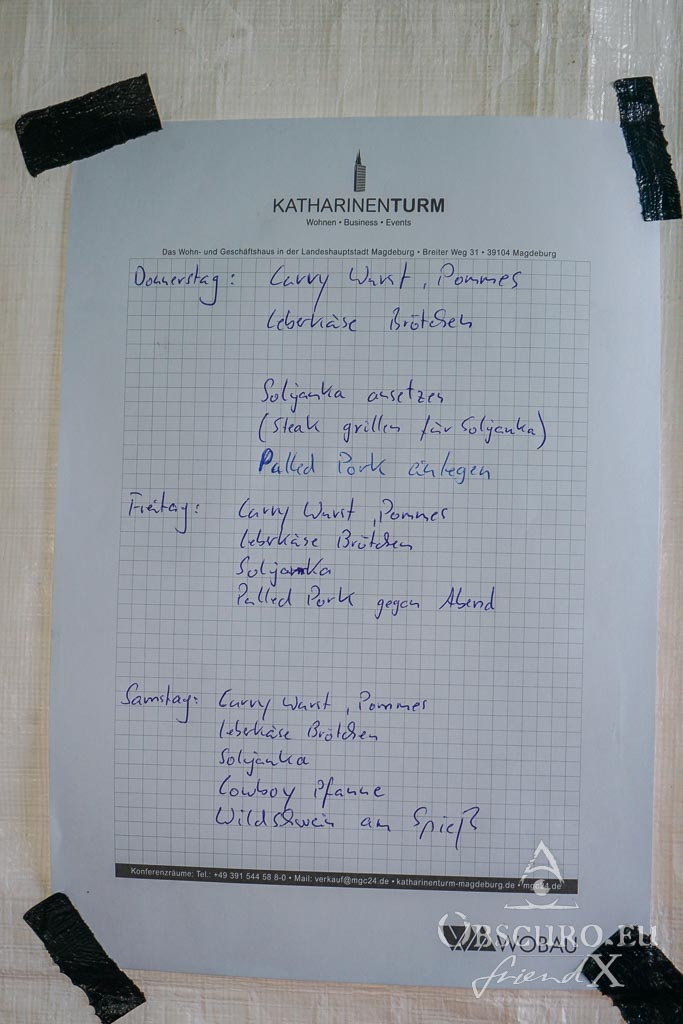 KATHARINENTURM
Wohnen • Business • Events
Das Wohn- und Geschäftshaus in der Landeshauptstadt Magdeburg • Breiter Weg 31 • 39104 Magdeburg
Donnerstag: Curry Wurst, Pommes
Leberkäse Brötchen
Soljanka ansetzen
(Steak grillen für Soljanka)
Pulled Pork einlegen
Freitag: Curry Wurst, Pommes
Leberkäse Brötchen
Soljanka
Pulled Pork gegen Abend
Samstag: Curry Wurst, Pommes
Leberkäse Brötchen
Soljanka
Cowboy Pfanne
Wildschwein am Spieß
Konferenzräume: Tel.: +49 391 544 58 8-0 • Mail: verkauf@mgc24.de • katharinenturm-magdeburg.de • mgc24.de
WOBAU
OBSCURO.EU
friendX